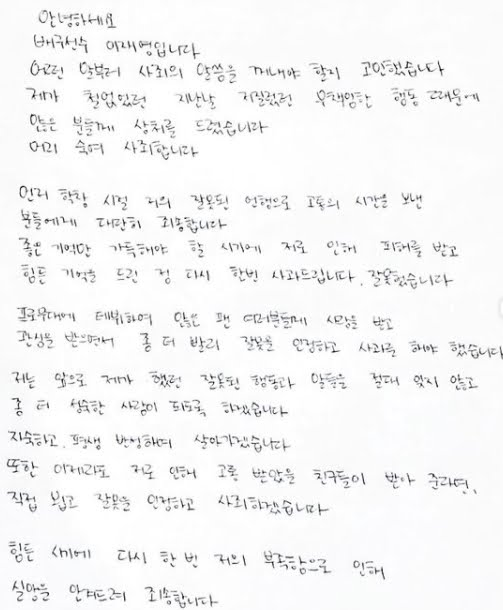 안녕하세요
배구선수 이재영입니다
어떤 말부터 사죄의 말씀을 꺼내야 할지 고민했습니다
제가 철없었던 지난날 저질렀던 무책임한 행동 때문에
많은 분들께 상처를 드렸습니다
머리 숙여 사죄합니다
먼저 학창 시절 저의 잘못된 언행으로 고통의 시간을 보낸
분들에게 대단히 죄송합니다
좋은 기억만 가득해야 할 시기에 저로 인해 피해를 받고
힘든 기억을 드린 점 다시 한번 사과드립니다. 잘못했습니다
프로무대에 데뷔하여 많은 팬 여러분들께 사랑을 받고
관심을 받으면서 좀 더 빨리 잘못을 인정하고 사과를 해야 했습니다
저는 앞으로 제가 했던 잘못된 행동과 말들을 절대 잊지 않고
좀 더 성숙한 사람이 되도록 하겠습니다
자숙하고 평생 반성하며 살아가겠습니다
또한 이제라도 저로 인해 고통 받았을 친구들이 받아 준다면,
직접 뵙고 잘못을 인정하고 사죄하겠습니다
힘든 시기에 다시 한 번 저의 부족함으로 인해
실망을 안겨드려 죄송합니다